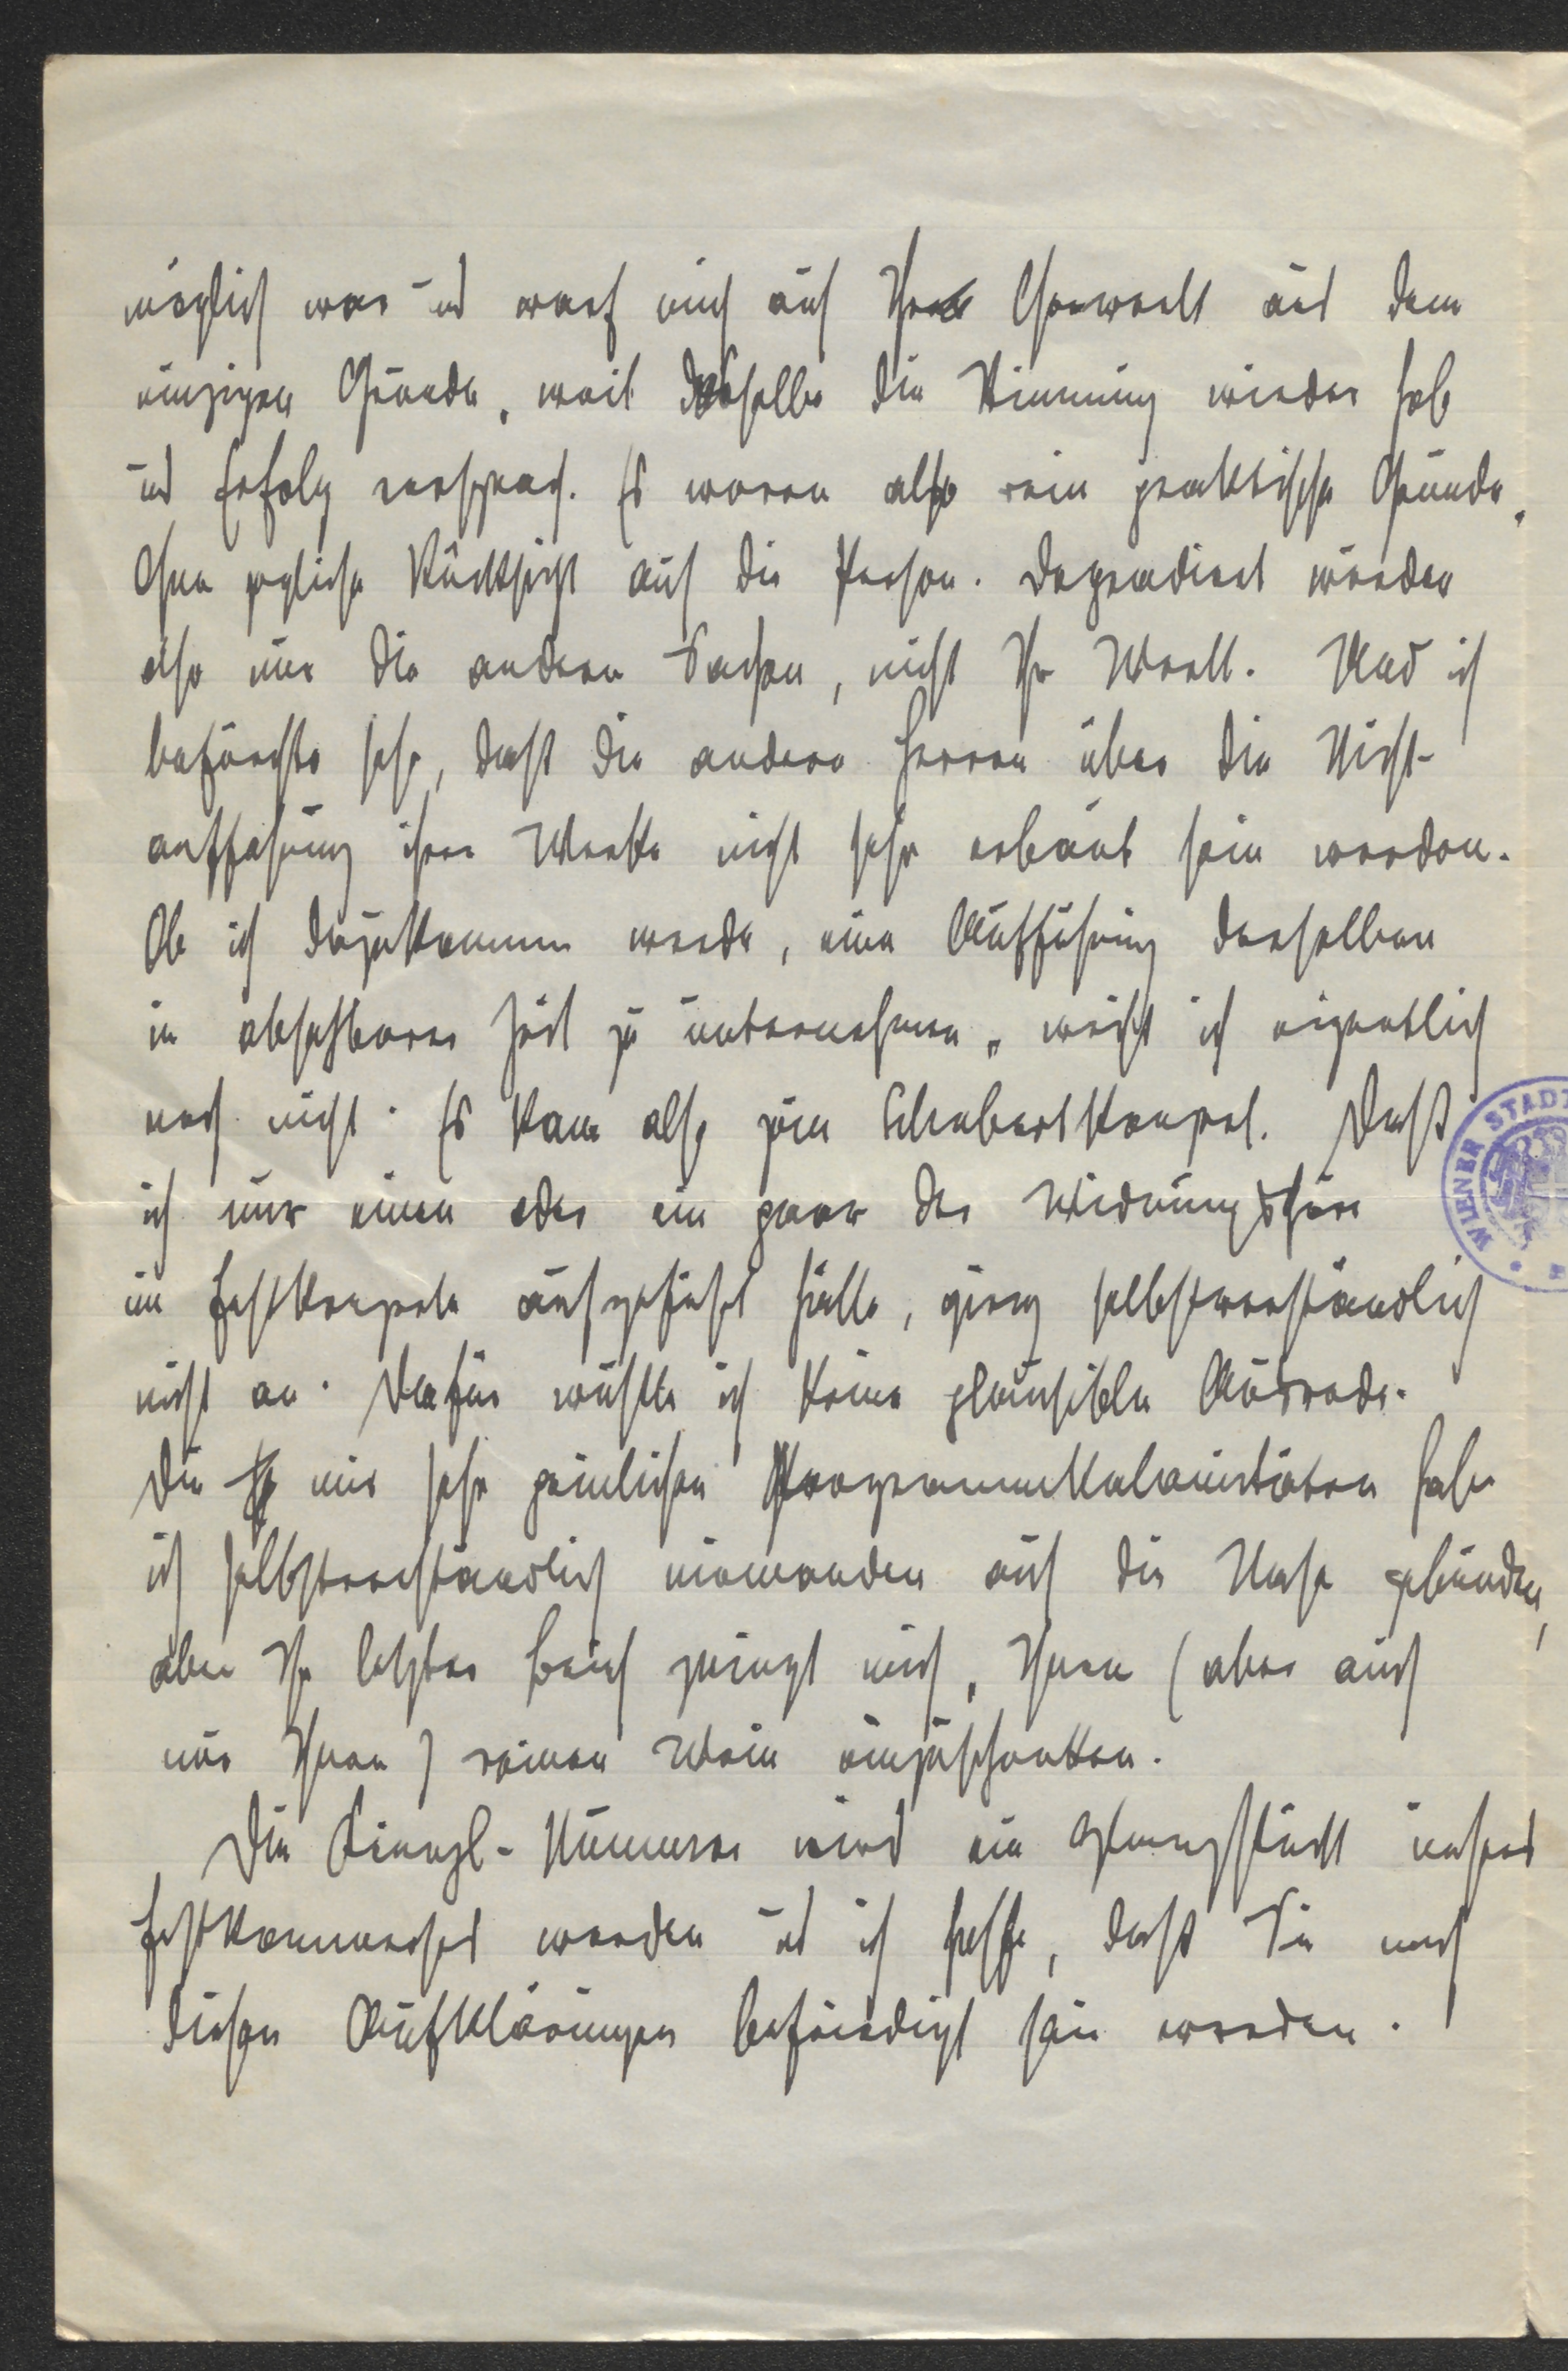 möglich war und warf mich auf Ihr Chorwerk aus dem
einzigen Grunde, weil dasselbe die Stimmung wieder hob
und Erfolg versprach. Es waren also rein praktische Gründe,
Ohne jegliche Rücksicht auf die Person. Degradiert wurden
also nur die andern Sachen, nicht Ihr Werk. Und ich
befürchte sehr, daß die andern Herren über die Nicht-
aufführung ihrer Werke nicht sehr erbaut sein werden.
Ob ich dazukommen werde, eine Aufführung derselben
in absehbarer Zeit zu unternehmen, weiß ich eigentlich
noch nicht. Es kam also zum Schubertkonzert. Daß
ich nur einen oder ein paar der Widmungschöre
im Festkonzerte aufgeführt hätte, ging selbstverständlich
nicht an. Dafür wüßte ich keine plausible Ausrede.
Die mir sehr peinlichen Programmkalamitäten habe
ich selbstverständlich niemanden auf die Nase gebunden,
aber Ihr letzter Brief zwingt mich, Ihnen (aber auch
nur Ihnen) reinen Wein einzuschenken.
Die Kienzl-Nummer wird ein Glanzstück unseres
Festkommerses werden und ich hoffe, daß Sie nach
diesen Aufklärungen befriedigt sein werden.
WIENER STADT